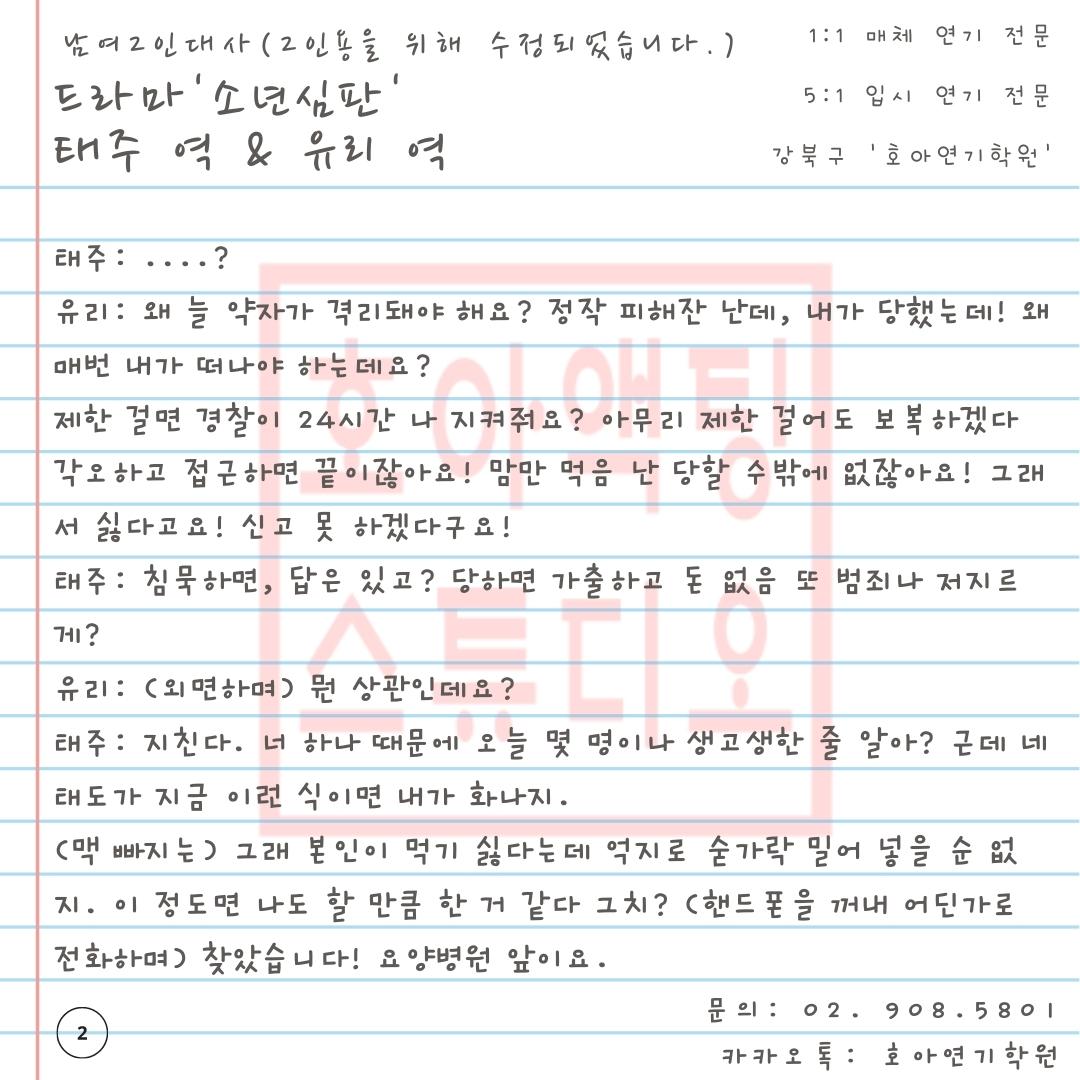 남여2인대사(2인용을 위해 수정되었습니다.)
1:1 매체 연기 전문
드라마'소년심판'
5:1 입시 연기 전문
태주 역 & 유리 역
강북구 '호아연기학원'
태주: ....?
유리: 왜 늘 약자가 격리돼야 해요? 정작 피해잔 난데, 내가 당했는데! 왜
매번 내가 떠나야 하는데요?
제한 걸면 경찰이 24시간 나 지켜줘요? 아무리 제한 걸어도 보복하겠다
각오하고 접근하면 끝이잖아요! 맘만 먹음 난 당할 수밖에 없잖아요! 그래
서 싫다고요! 신고 못 하겠다구요!
태주: 침묵하면, 답은 있고? 당하면 가출하고 돈 없음 또 범죄나 저지르
게?
유리: (외면하며) 뭔 상관인데요?
태주: 지친다. 너 하나 때문에 오늘 몇 명이나 생고생한 줄 알아? 근데 네
태도가 지금 이런 식이면 내가 화나지.
(맥 빠지는) 그래 본인이 먹기 싫다는데 억지로 숟가락 밀어 넣을 순 없
지. 이 정도면 나도 할 만큼 한 거 같다 그치? (핸드폰을 꺼내 어딘가로
전화하며) 찾았습니다! 요양병원 앞이요.
호아액팅
스튜디오
2
문의: 02. 908.5801
카카오톡: 호아연기학원